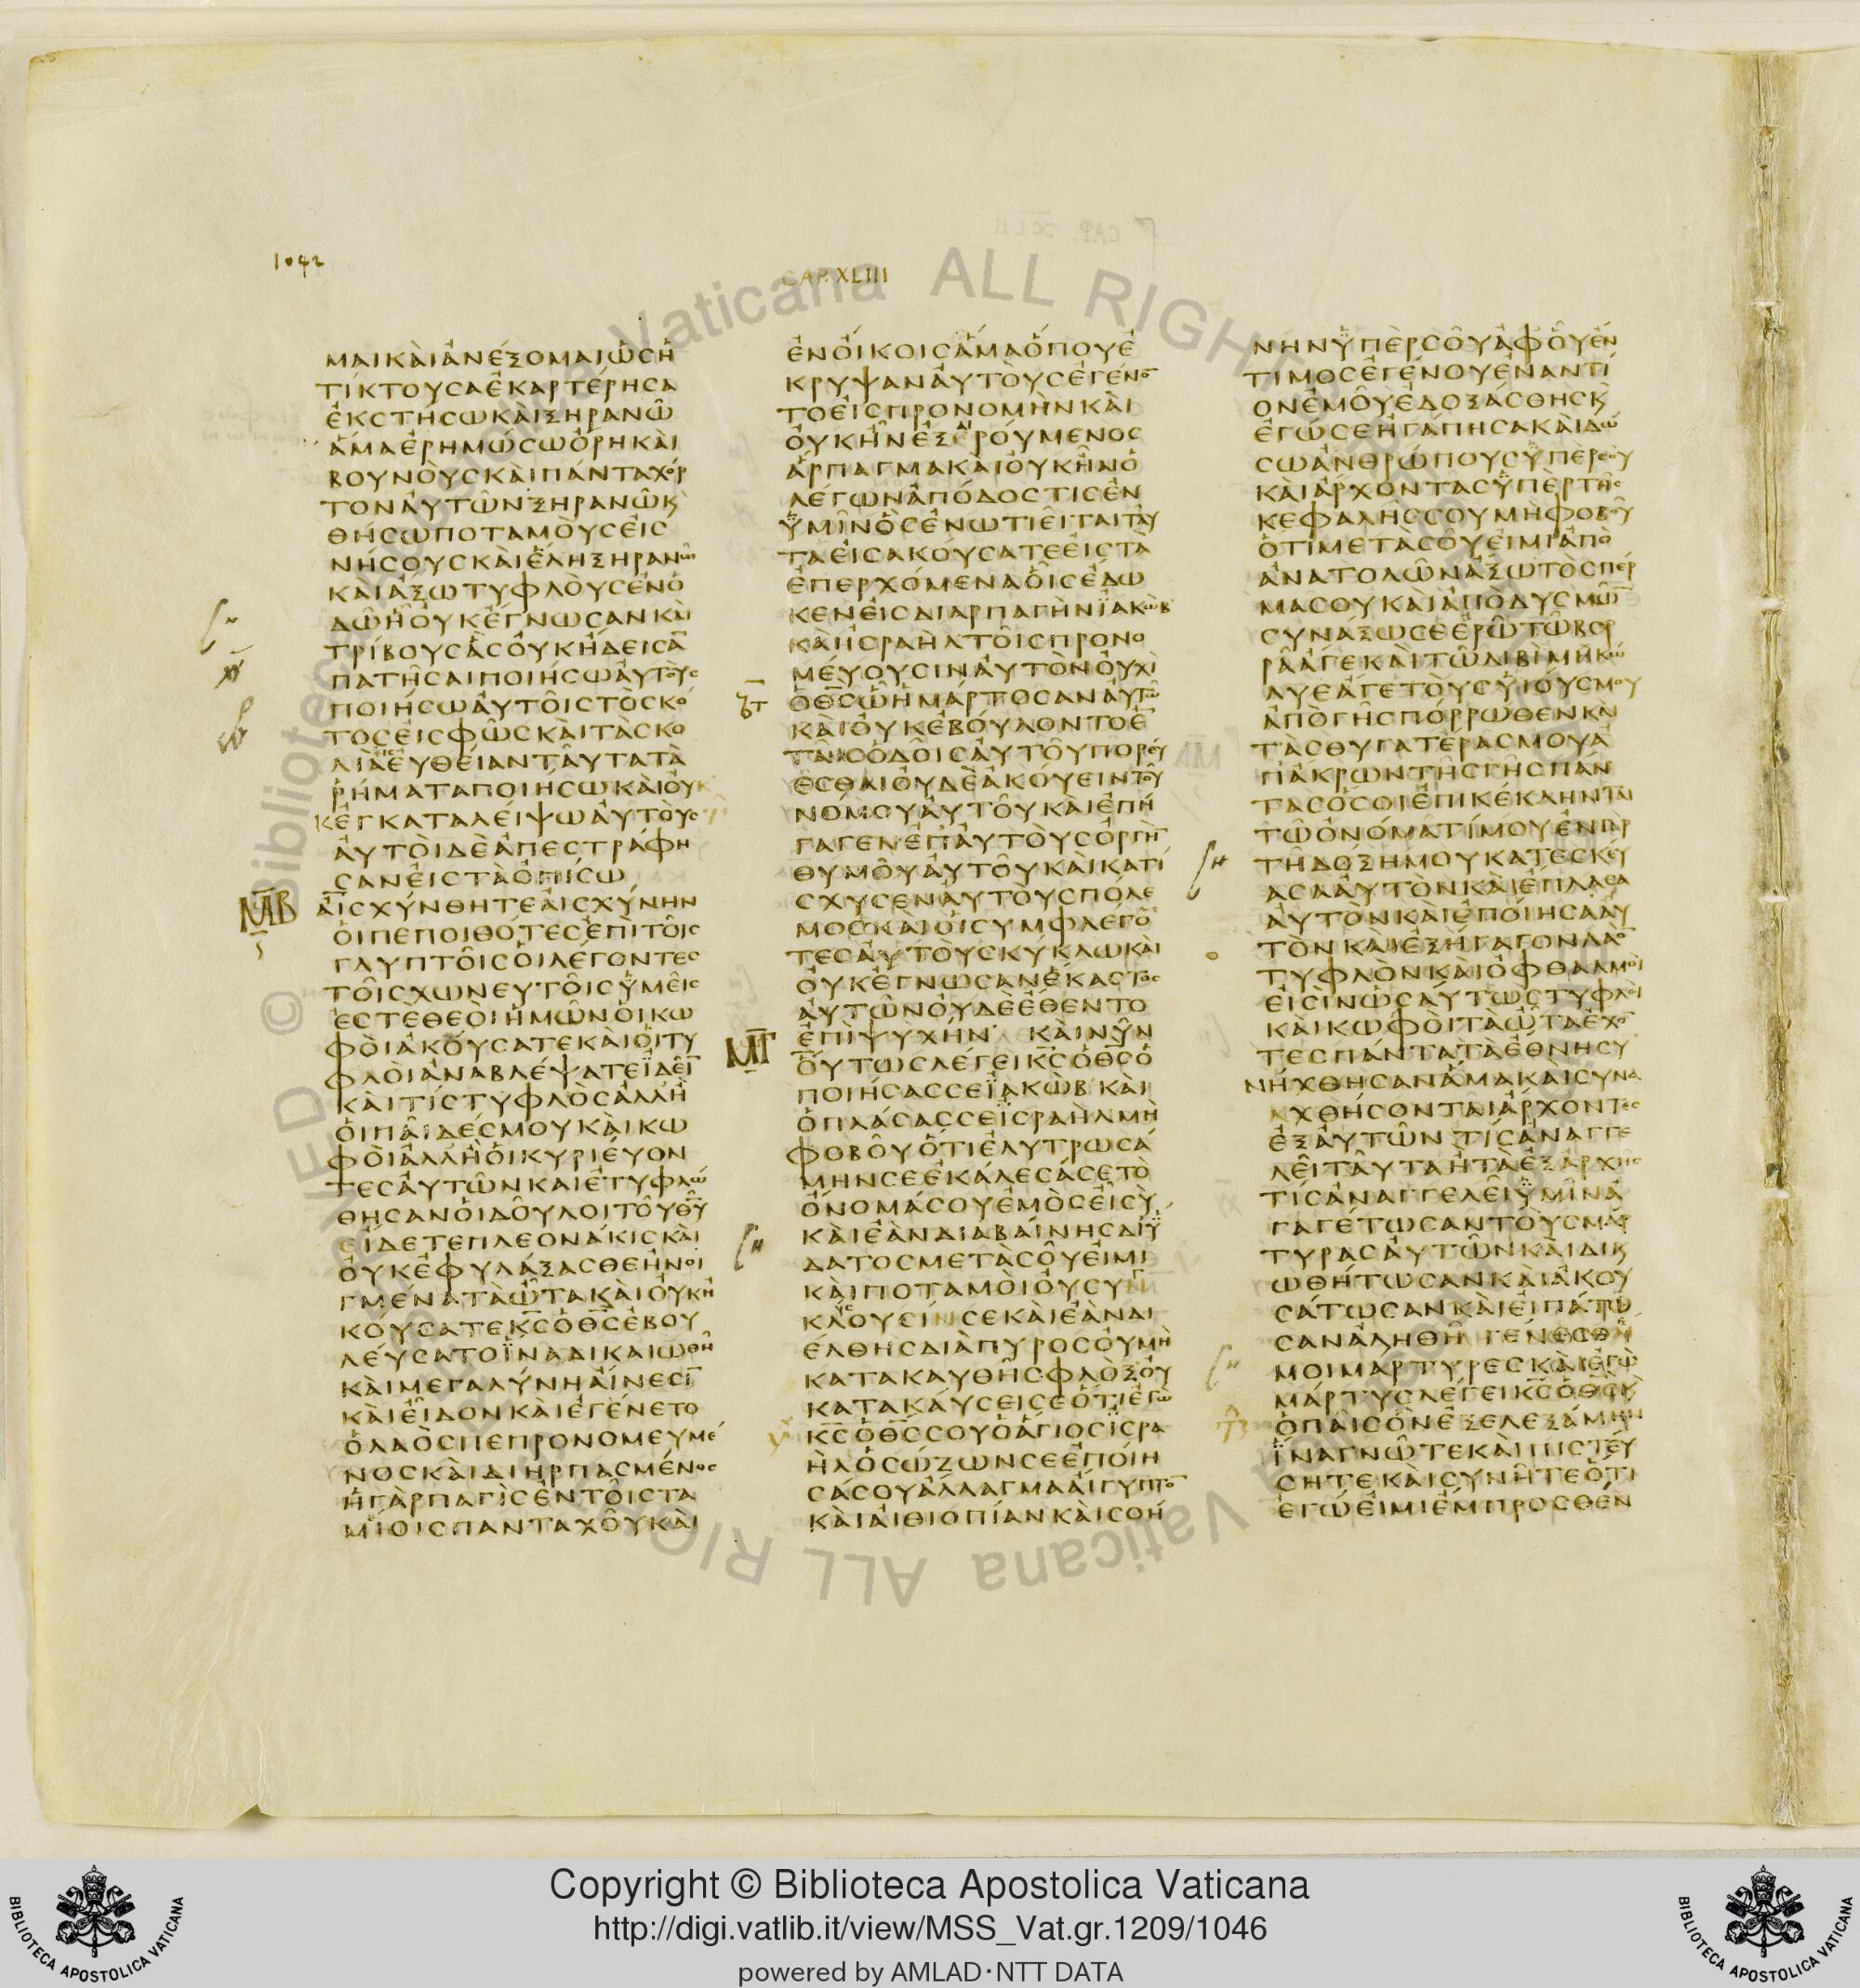 1042
CAP. XLIII
ΜΑΙΚΑΙΑΝΕΞΟΜΑΙΩCΗ
ΤΙΚΤΟΥCΑΕΚΑΡΤΕΡΗCΑ
ΕΚCΤΗCΩΚΑΙΞΗΡΑΝΩ
ΑΜΑΕΡΗΜΩCΩΟΡΗΚΑΙ
ΒΟΥΝΟΥCΚΑΙΠΑΝΤΑΧΟΡ
ΤΟΝΑΥΤΩΝΞΗΡΑΝΩΚ
ΘΗCΩΠΟΤΑΜΟΥCΕΙC
ΝΗCΟΥCΚΑΙΕΛΗΞΗΡΑΝΩ
ΚΑΙΑΞΩΤΥΦΛΟΥCΕΝΟ
ΔΩΗΟΥΚΕΓΝΩCΑΝΚΑΙ
ΤΡΙΒΟΥCΑCΟΥΚΗΔΕΙCΑ̅
ΠΑΤΗCΑΙΠΟΙΗCΩΑΥΤΟΥC
ΠΟΙΗCΩΑΥΤΟΙCΤΟCΚΟ
ΤΟCΕΙCΦΩCΚΑΙΤΑCΚΟ
ΛΙΑΕΙCΕΥΘΕΙΑΝΤΑΥΤΑΤΑ
ΡΗΜΑΤΑΠΟΙΗCΩΚΑΙΟΥΚ
ΚΕΓΚΑΤΑΛΕΙΨΩΑΥΤΟΥC
ΑΥΤΟΙΔΕΑΠΕCΤΡΑΦΗ
CΑΝΕΙCΤΑΟΠΙCΩ
ΜΒ ΑΙCΧΥΝΘΗΤΕΑΙCΧΥΝΗΝ
ΟΙΠΕΠΟΙΘΟΤΕCΕΠΙΤΟΙC
ΓΛΥΠΤΟΙCΟΙΛΕΓΟΝΤΕC
ΤΟΙCΧΩΝΕΥΤΟΙCΥΜΕΙC
ΕCΤΕΘΕΟΙΗΜΩΝΟΙΚΩ
ΦΟΙΑΚΟΥCΑΤΕΚΑΙΟΙΤΥ
ΦΛΟΙΑΝΑΒΛΕΨΑΤΕΪΔΕΙ̅
ΚΑΙΤΙCΤΥΦΛΟCΑΛΛΗ
ΟΙΠΑΙΔΕCΜΟΥΚΑΙΚΩ
ΦΟΙΑΛΛΗΟΙΚΥΡΙΕΥΟΝ
ΤΕCΑΥΤΩΝΚΑΙΕΤΥΦΛΩ
ΘΗCΑΝΟΙΔΟΥΛΟΙΤΟΥΘ̅Υ̅
ΕΙΔΕΤΕΠΛΕΟΝΑΚΙCΚΑΙ
ΟΥΚΕΦΥΛΑΞΑCΘΕΗΝΟΙ
ΓΜΕΝΑΤΑΩΤΑΚΑΙΟΥΚΗ
ΚΟΥCΑΤΕΚ̅C̅ΟΘ̅C̅ΕΒΟΥ
ΛΕΥCΑΤΟΪΝΑΔΙΚΑΙΩΘΗ
ΚΑΙΜΕΓΑΛΥΝΗΑΙΝΕCΙ̅
ΚΑΙΕΙΔΟΝΚΑΙΕΓΕΝΕΤΟ
ΟΛΑΟCΠΕΠΡΟΝΟΜΕΥΜΕ
ΝΟCΚΑΙΔΙΗΡΠΑCΜΕΝΟC
ΗΓΑΡΠΑΓΙCΕΝΤΟΙCΤΑ
ΜΙΟΙCΠΑΝΤΑΧΟΥΚΑΙ
ΕΝΟΙΚΟΙCΑΜΑΟΠΟΥΕ
ΚΡΥΨΑΝΑΥΤΟΥCΕΓΕΝΟ̅
ΤΟΕΙCΠΡΟΝΟΜΗΝΚΑΙ
ΟΥΚΗΝΕΞΑΙΡΟΥΜΕΝΟC
ΑΡΠΑΓΜΑΚΑΙΟΥΚΗΝΟ
ΛΕΓΩΝΑΠΟΔΟCΤΙCΕΝ
ΫΜΙΝΟCΕΝΩΤΙΕΙΤΑΙΤΑΥ
ΤΑΕΙCΑΚΟΥCΑΤΕΕΙCΤΑ
ΕΠΕΡΧΟΜΕΝΑΟΙCΕΔΩ
ΚΕΝΕΙCΔΙΑΡΠΑΓΗΝΪΑΚΩΒ
ΚΑΙΙCΡΑΗΛΤΟΙCΠΡΟΝΟ
ΜΕΥΟΥCΙΝΑΥΤΟΝΟΥΧΙ
ΟΘ̅C̅ΩΗΜΑΡΤΟCΑΝΑΥΤΩ
ΚΑΙΟΥΚΕΒΟΥΛΟΝΤΟΕ̅
ΤΑΙCΟΔΟΙCΑΥΤΟΥΠΟΡΕΥ
ΕCΘΑΙΟΥΔΕΑΚΟΥΕΙΝΤΟΥ
ΝΟΜΟΥΑΥΤΟΥΚΑΙΕΠΗ
ΓΑΓΕΝΕΠΑΥΤΟΥCΟΡΓΗ̅
ΘΥΜΟΥΑΥΤΟΥΚΑΙΚΑΤΙ
CΧΥCΕΝΑΥΤΟΥCΠΟΛΕ
ΜΟCΚΑΙΟΙCΥΜΦΛΕΓΟ̅
ΤΕCΑΥΤΟΥCΚΥΚΛΩΚΑΙ
ΟΥΚΕΓΝΩCΑΝΕΚΑCΤΟC
ΑΥΤΩΝΟΥΔΕΕΘΕΝΤΟ
ΕΠΙΨΥΧΗΝ ΚΑΙΝΥΝ
ΜΓ ΟΥΤΩCΛΕΓΕΙΚ̅C̅ΟΘ̅C̅Ο
ΠΟΙΗCΑCCΕΪΑΚΩΒΚΑΙ
ΟΠΛΑCΑCCΕΪCΡΑΗΛΜΗ
ΦΟΒΟΥΟΤΙΕΛΥΤΡΩCΑ
ΜΗΝCΕΕΚΑΛΕCΑCΕΤΟ
ΟΝΟΜΑCΟΥΕΜΟCΕΙCΥ
ΚΑΙΕΑΝΔΙΑΒΑΙΝΗCΔΙΫ
ΔΑΤΟCΜΕΤΑCΟΥΕΙΜΙ
ΚΑΙΠΟΤΑΜΟΙΟΥCΥΓ
ΚΛΥCΟΥCΙΝCΕΚΑΙΕΑΝΔΙ
ΕΛΘΗCΔΙΑΠΥΡΟCΟΥΜΗ
ΚΑΤΑΚΑΥΘΗCΦΛΟΞΟΥ
ΚΑΤΑΚΑΥCΕΙCΕΟΤΙΕΓΩ
Κ̅C̅ΟΘ̅C̅CΟΥΟΑΓΙΟCΪCΡΑ
ΗΛΟCΩΖΩΝCΕΕΠΟΙΗ
CΑCΟΥΑΛΛΑΓΜΑΑΙΓΥΠΤΟ̅
ΚΑΙΑΙΘΙΟΠΙΑΝΚΑΙCΟΗ
ΝΗΝΫΠΕΡCΟΥΑΦΟΥΕΝ
ΤΙΜΟCΕΓΕΝΟΥΕΝΑΝΤΙ
ΟΝΕΜΟΥΕΔΟΞΑCΘΗCΚ
ΕΓΩCΕΗΓΑΠΗCΑΚΑΙΔΩ
CΩΑΝΘΡΩΠΟΥCΫΠΕΡCΟΥ
ΚΑΙΑΡΧΟΝΤΑCΫΠΕΡΤΗC
ΚΕΦΑΛΗCCΟΥΜΗΦΟΒΟΥ
ΟΤΙΜΕΤΑCΟΥΕΙΜΙΑΠΟ
ΑΝΑΤΟΛΩΝΑΞΩΤΟCΠΕΡ
ΜΑCΟΥΚΑΙΑΠΟΔΥCΜΩ̅
CΥΝΑΞΩCΕΕΡΩΤΩΒΟΡ
ΡΑΑΓΕΚΑΙΤΩΛΙΒΙΜΗΚΩ
ΛΥΕΑΓΕΤΟΥCΫΙΟΥCΜΟΥ
ΑΠΟΓΗCΠΟΡΡΩΘΕΝΚΑΙ
ΤΑCΘΥΓΑΤΕΡΑCΜΟΥΑ
ΠΑΚΡΩΝΤΗCΓΗCΠΑΝ
ΤΑCΟCΟΙΕΠΙΚΕΚΛΗΝΤΑΙ
ΤΩΟΝΟΜΑΤΙΜΟΥΕΝΓΑΡ
ΤΗΔΟΞΗΜΟΥΚΑΤΕCΚΕΥ
ΑCΑΑΥΤΟΝΚΑΙΕΠΛΑCΑ
ΑΥΤΟΝΚΑΙΕΠΟΙΗCΑΑΥ
ΤΟΝΚΑΙΕΞΗΓΑΓΟΝΛΑΟ̅
ΤΥΦΛΟΝΚΑΙΟΦΘΑΛΜΟΙ
ΕΙCΙΝΩCΑΥΤΩCΤΥΦΛΟΙ
ΚΑΙΚΩΦΟΙΤΑΩΤΑΕΧΟ̅
ΤΕCΠΑΝΤΑΤΑΕΘΝΗCΥ
ΝΗΧΘΗCΑΝΑΜΑΚΑΙCΥΝΑ
ΧΘΗCΟΝΤΑΙΑΡΧΟΝΤΕC
ΕΞΑΥΤΩΝΤΙCΑΝΑΓΓΕ
ΛΕΙΤΑΥΤΑΗΤΑΕΞΑΡΧΗC
ΤΙCΑΝΑΓΓΕΛΕΙΫΜΙΝΑ
ΓΑΓΕΤΩCΑΝΤΟΥCΜΑΡ
ΤΥΡΑCΑΥΤΩΝΚΑΙΔΙΚ
ΩΘΗΤΩCΑΝΚΑΙΑΚΟΥ
CΑΤΩCΑΝΚΑΙΕΙΠΑΤΩ
CΑΝΑΛΗΘΗΓΕΝΕCΘΕ
ΜΟΙΜΑΡΤΥΡΕCΚΑΙΕΓΩ
ΜΑΡΤΥCΛΕΓΕΙΚ̅C̅ΟΘ̅C̅Κ
ΟΠΑΙCΟΝΕΞΕΛΕΞΑΜΗΝ
ΪΝΑΓΝΩΤΕΚΑΙΠΙCΤΕΥ
CΗΤΕΚΑΙCΥΝΗΤΕΟΤΙ
ΕΓΩΕΙΜΙΕΜΠΡΟCΘΕΝ
Copyright © Biblioteca Apostolica Vaticana
http://digi.vatlib.it/view/MSS_Vat.gr.1209/1046
powered by AMLAD·NTT DATA
BIBLIOTECA APOSTOLICA VATICANA
BIBLIOTECA APOSTOLICA VATICANA